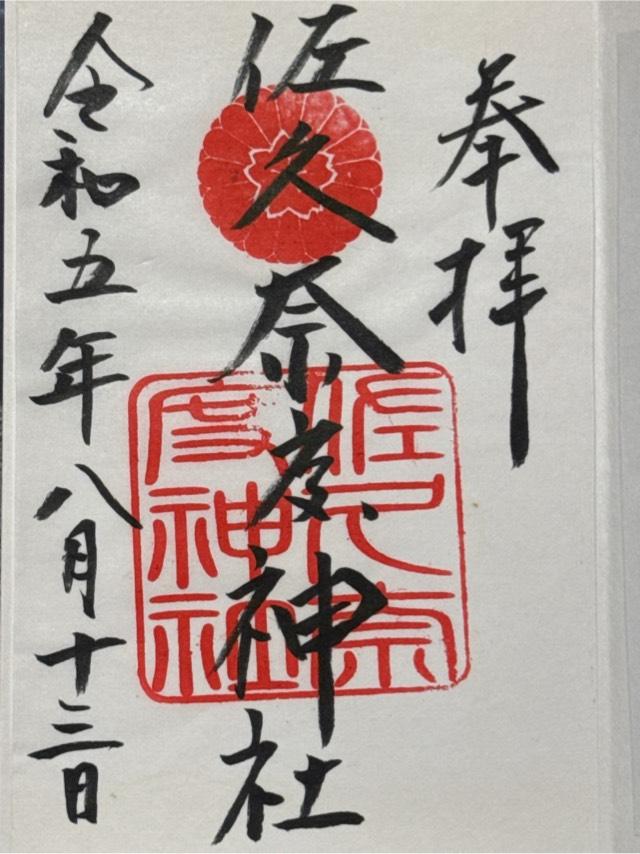 奉拝
佐久奈度神社
佐久奈度神社
令和五年八月十三日